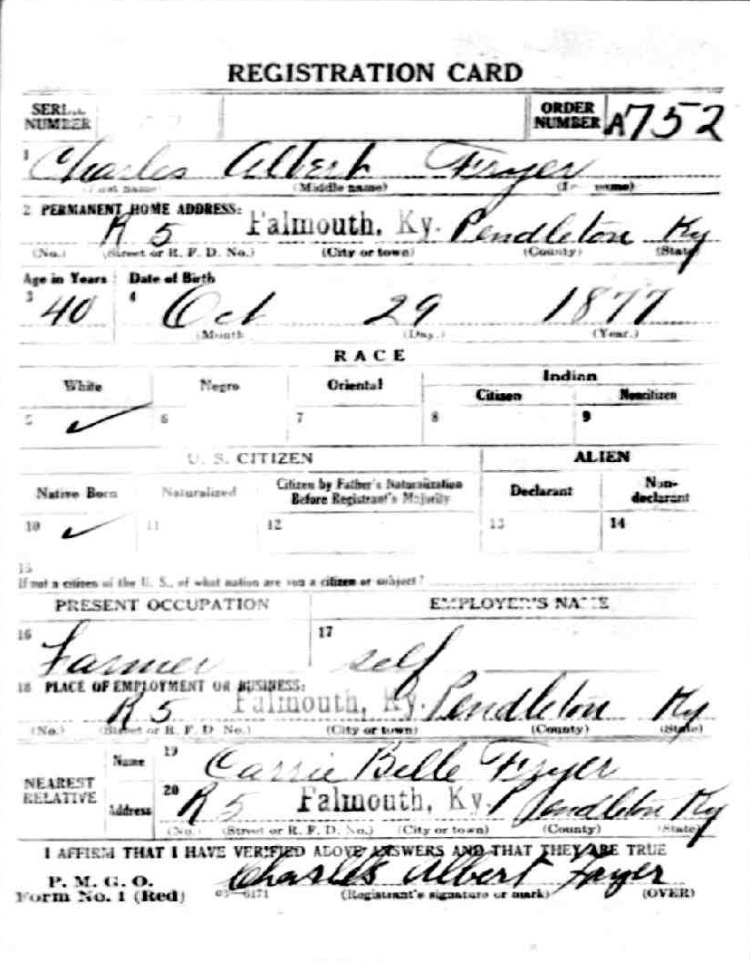 REGISTRATION CARD
SERIAL NUMBER ORDER NUMBER A752
1 Charles Albert Fryer
(First name) (Middle name) (Last name)
2 PERMANENT HOME ADDRESS:
R 5 Falmouth, Ky. Pendleton Ky
(No.) (Street or R. F. D. No.) (City or town) (County) (State)
Age in Years Date of Birth
3 40 4 Oct 29 1877
(Month) (Day.) (Year.)
RACE
White Negro Oriental Indian
Citizen Noncitizen
5 ✓ 6 7 8 9
U. S. CITIZEN ALIEN
Native Born Naturalized Citizen by Father's Naturalization Before Registrant's Majority Declarant Non-declarant
10 ✓ 11 12 13 14
15
If not a citizen of the U. S., of what nation are you a citizen or subject?
PRESENT OCCUPATION EMPLOYER'S NAME
16 Farmer 17 self
18 PLACE OF EMPLOYMENT OR BUSINESS:
R 5 Falmouth, Ky. Pendleton Ky
(No.) (Street or R. F. D. No.) (City or town) (County) (State)
NEAREST RELATIVE Name 19 Carrie Belle Fryer
Address 20 R 5 Falmouth, Ky. Pendleton Ky
(No.) (Street or R. F. D. No.) (City or town) (County) (State)
I AFFIRM THAT I HAVE VERIFIED ABOVE ANSWERS AND THAT THEY ARE TRUE
P. M. G. O.
Form No. 1 (Red) 03—6171 Charles Albert Fryer
(Registrant's signature or mark) (OVER)